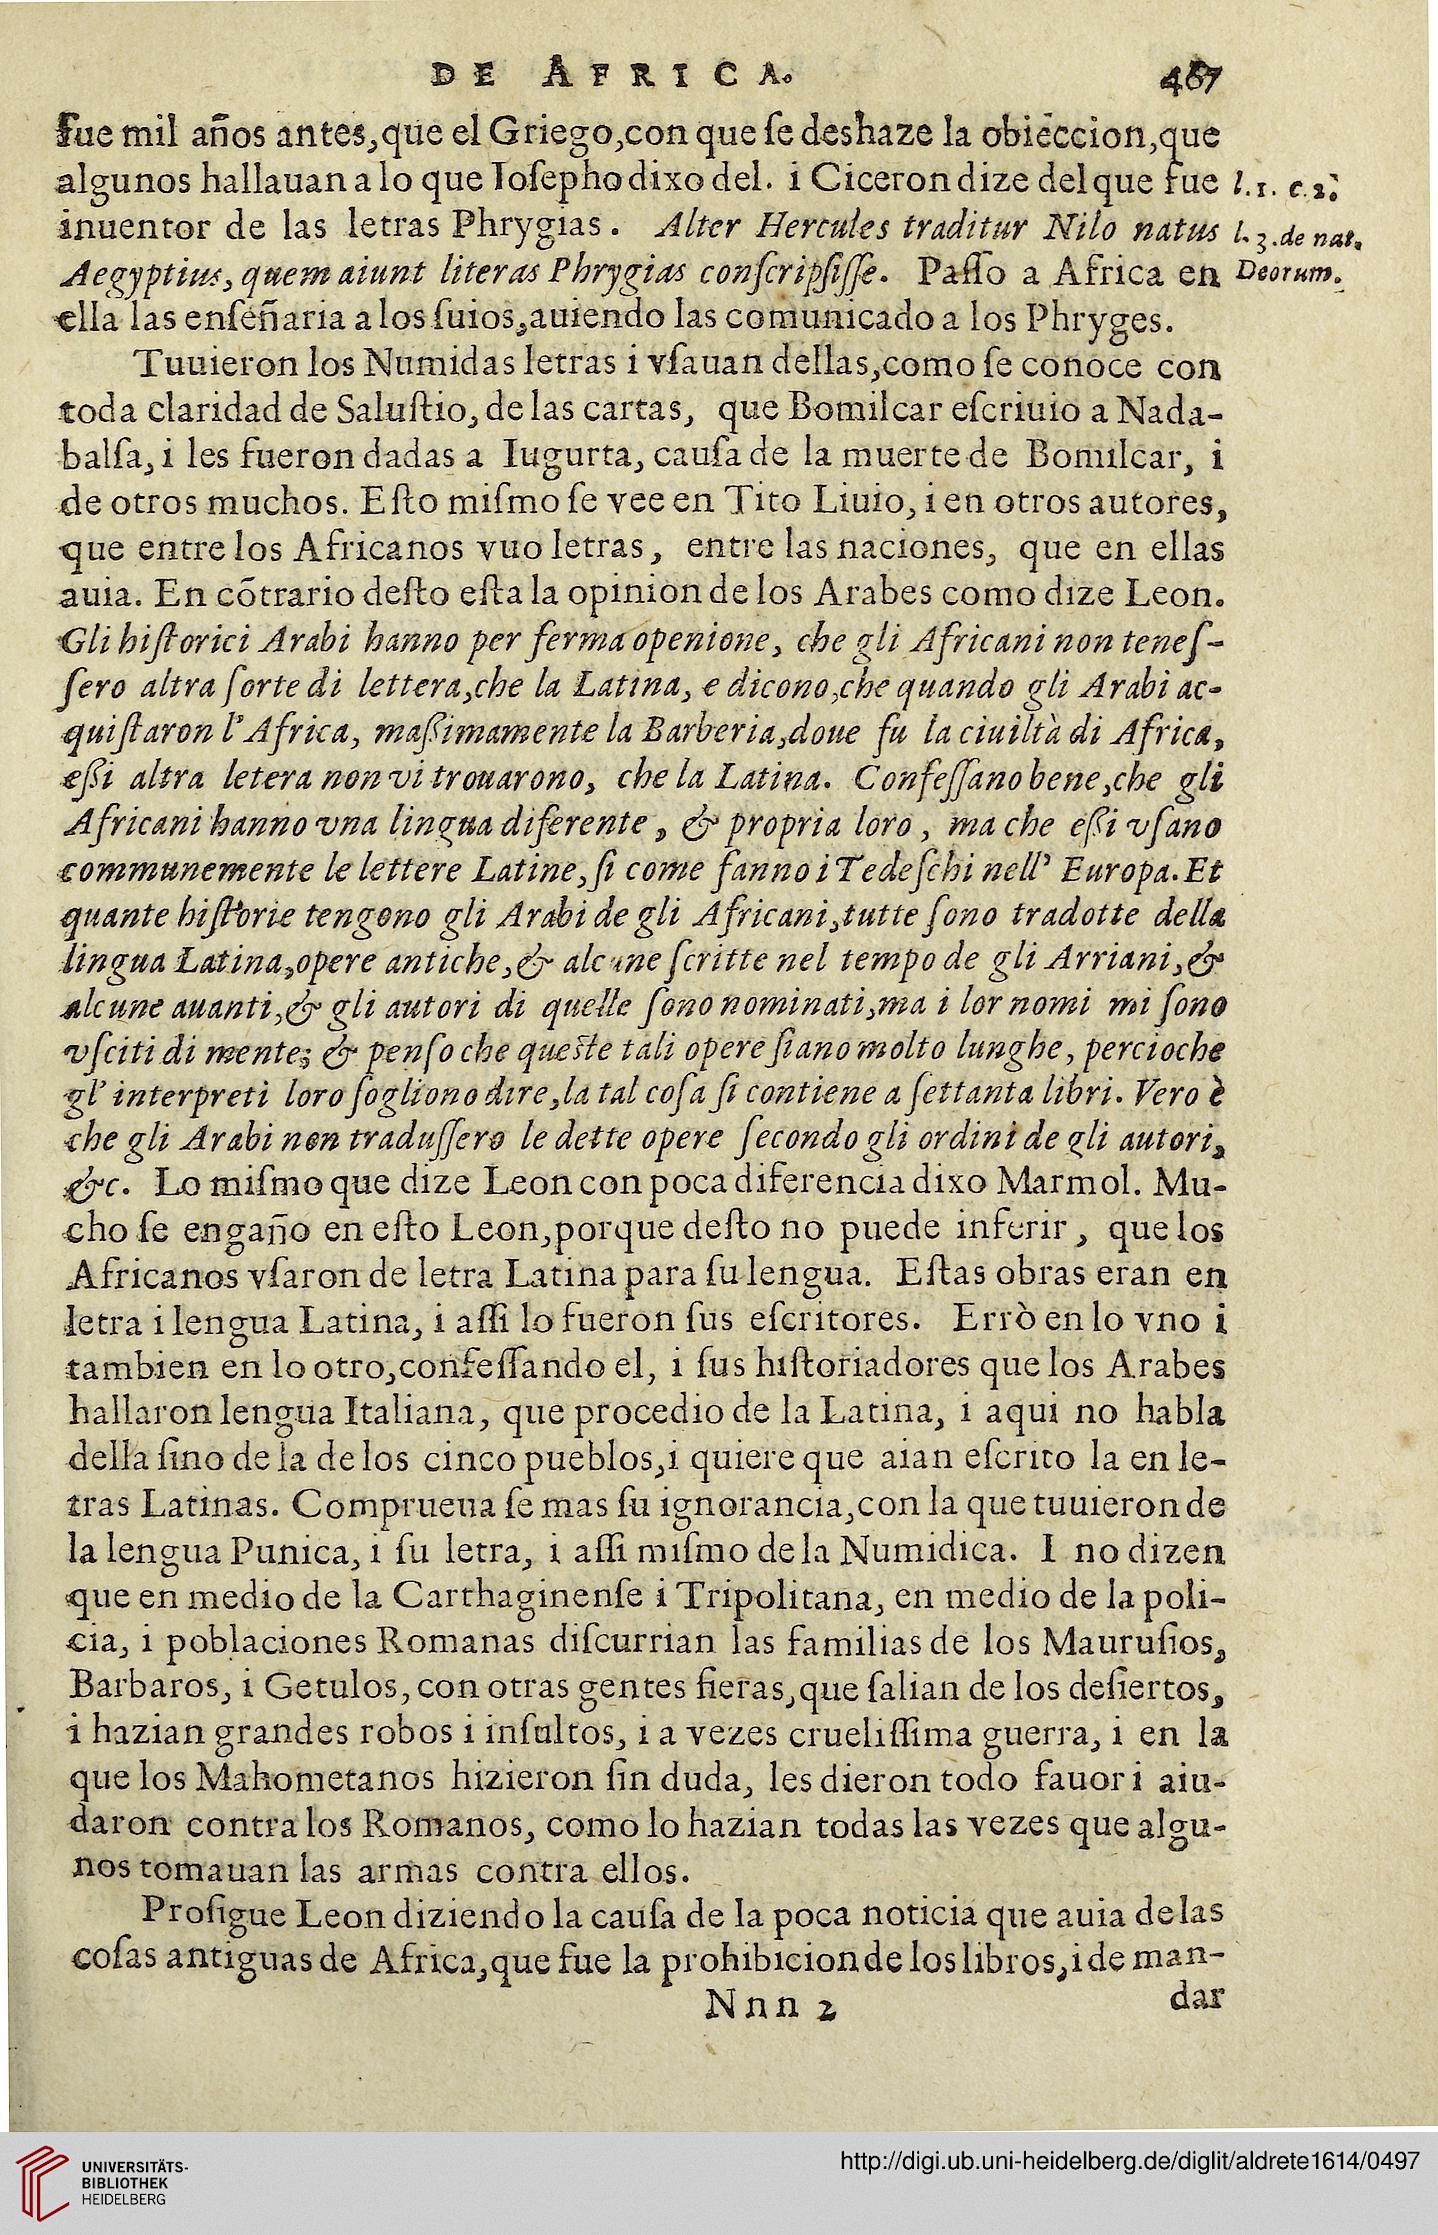 DE AFRICA. 467
fue mil años antes,que el Griego,con que ſe deshaze la obieccion,que
algunos hallauan a lo que Ioſepho dixo del. i Ciceron dize del que fue l.1. c.2.
inuentor de las letras Phrygias. Alter Hercules traditur Nilo natus l.3.de nat.
Aegyptius, quem aiunt literas Phrygias conſcripſiſſe. Paſſo a Africa en Deorum.
ella las enſeñaria a los ſuios,auiendo las comunicado a los Phryges.
Tuuieron los Numidas letras i vſauan dellas,como ſe conoce con
toda claridad de Saluſtio, de las cartas, que Bomilcar eſcriuio a Nada-
balſa, i les fueron dadas a Iugurta, cauſa de la muerte de Bomilcar, i
de otros muchos. Eſto miſmo ſe vee en Tito Liuio, i en otros autores,
que entre los Africanos vuo letras, entre las naciones, que en ellas
auia. En cõtrario deſto eſta la opinion de los Arabes como dize Leon.
Gli hiſtorici Arabi hanno per ferma openione, che gli Africani non teneſ-
ſero altra ſorte di lettera,che la Latina, e dicono,che quando gli Arabi ac-
quiſtaron l'Africa, maßimamente la Barberia,doue fu la ciuiltà di Africa,
eßi altra letera non vi trouarono, che la Latina. Confeſſano bene,che gli
Africani hanno vna lingua diferente, & propria loro, ma che eßi vſano
communemente le lettere Latine,ſi come fanno i Tedeſchi nell' Europa.Et
quante hiſtorie tengono gli Arabi de gli Africani,tutte ſono tradotte della
lingua Latina,opere antiche,& alcune ſcritte nel tempo de gli Arriani,&
alcune auanti,& gli autori di quelle ſono nominati,ma i lor nomi mi ſono
vſciti di mente; & penſo che queſte tali opere ſiano molto lunghe, percioche
gl'interpreti loro ſogliono dire,la tal coſa ſi contiene a ſettanta libri. Vero è
che gli Arabi non traduſſero le dette opere ſecondo gli ordini de gli autori,
&c. Lo miſmo que dize Leon con poca diferencia dixo Marmol. Mu-
cho ſe engaño en eſto Leon,porque deſto no puede inferir, que los
Africanos vſaron de letra Latina para ſu lengua. Eſtas obras eran en
letra i lengua Latina, i aſſi lo fueron ſus eſcritores. Errò en lo vno i
tambien en lo otro,confeſſando el, i ſus hiſtoriadores que los Arabes
hallaron lengua Italiana, que procedio de la Latina, i aqui no habla
della ſino de la de los cinco pueblos,i quiere que aian eſcrito la en le-
tras Latinas. Comprueua ſe mas ſu ignorancia,con la que tuuieron de
la lengua Punica, i ſu letra, i aſſi miſmo de la Numidica. I no dizen
que en medio de la Carthaginenſe i Tripolitana, en medio de la poli-
cia, i poblaciones Romanas diſcurrian las familias de los Mauruſios,
Barbaros, i Getulos, con otras gentes fieras,que ſalian de los deſiertos,
i hazian grandes robos i inſultos, i a vezes crueliſſima guerra, i en la
que los Mahometanos hizieron ſin duda, les dieron todo fauor i aiu-
daron contra los Romanos, como lo hazian todas las vezes que algu-
nos tomauan las armas contra ellos.
Proſigue Leon diziendo la cauſa de la poca noticia que auia de las
coſas antiguas de Africa,que fue la prohibicion de los libros,i de man-
Nnn 2 dar
UNIVERSITÄTS-
BIBLIOTHEK
HEIDELBERG
http://digi.ub.uni-heidelberg.de/diglit/aldrete1614/0497